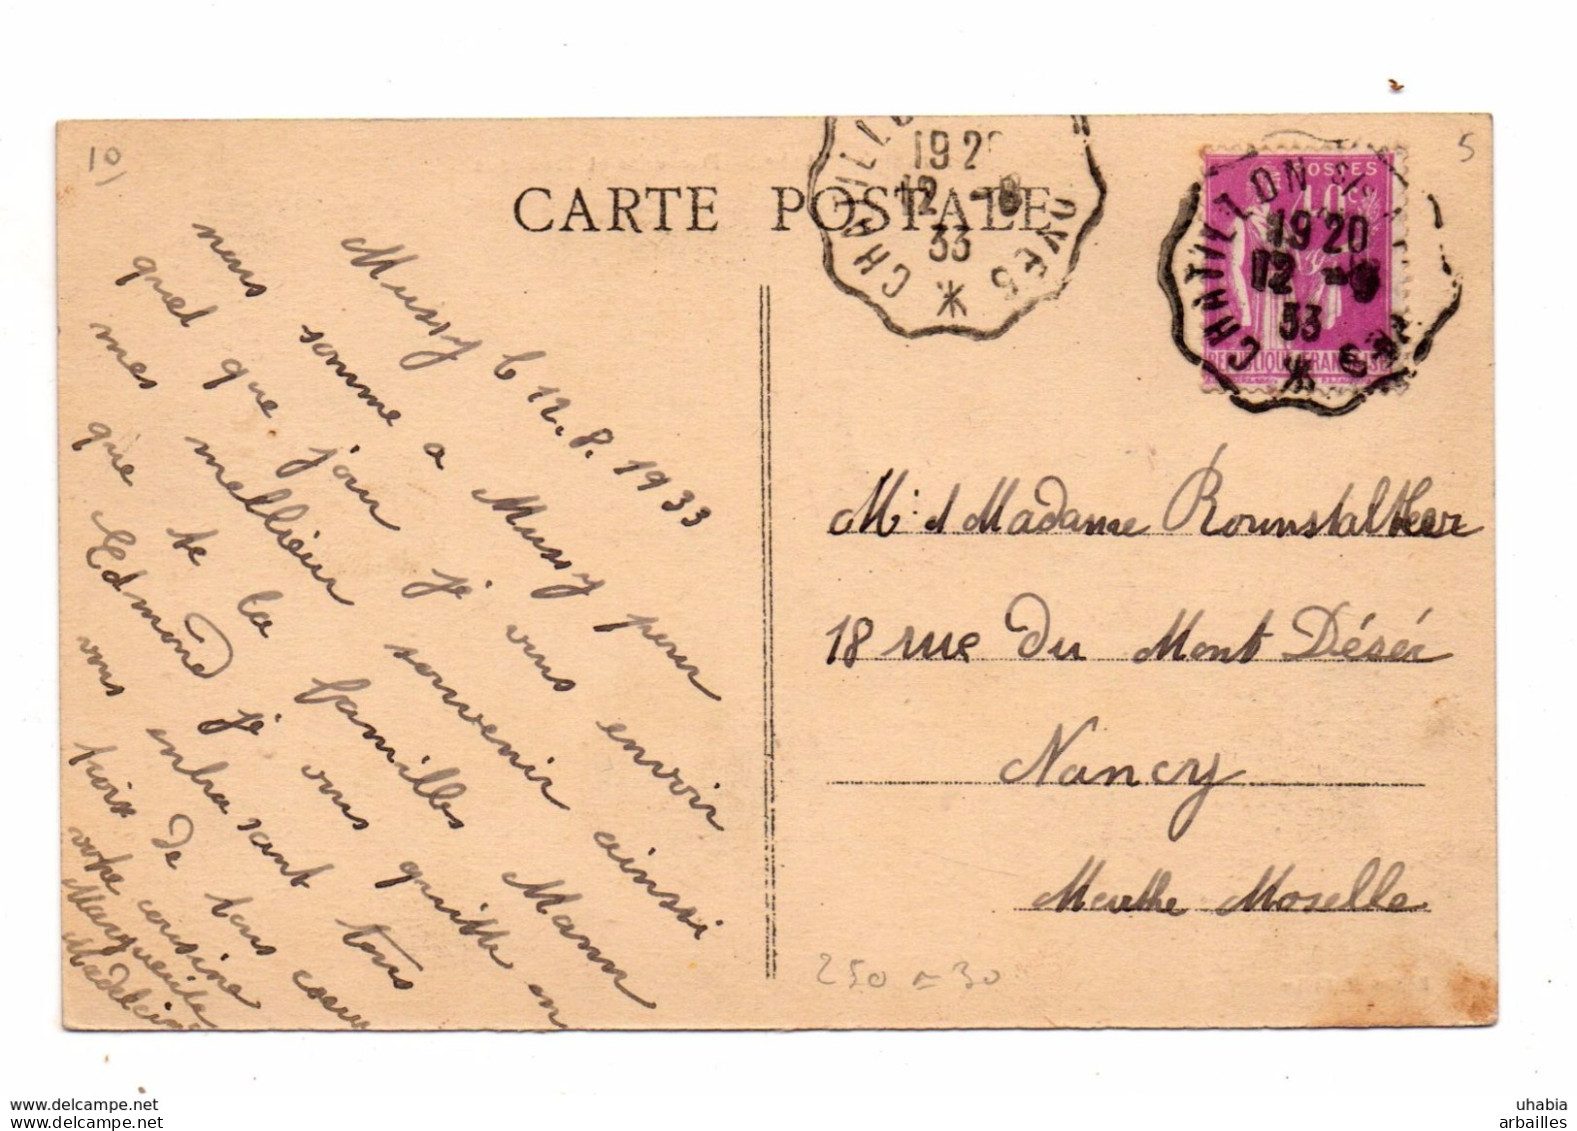 10
5
CARTE POSTALE
CHATILLO
19 2
12 -8
33
GVES
CHATILLON S/S
19 20
12 -8
33
POSTES
40c
REPUBLIQUE FRANÇAISE
Mussy le 12.8.1933
nous somme a Mussy pour
quel que jour je vous envoir
mes mellieur souvenir ainssi
que te la familles Mann
Edmond je vous quitte en
vous enbrasant tous
fois de tous coeur
votre cousine
Marguerite
Madeleine
M. et Madame Rounstalther
18 rue Du Mont Désér
Nancy
Meurthe Moselle
250 = 30
uhabia
arbailles
www.delcampe.net
www.delcampe.net